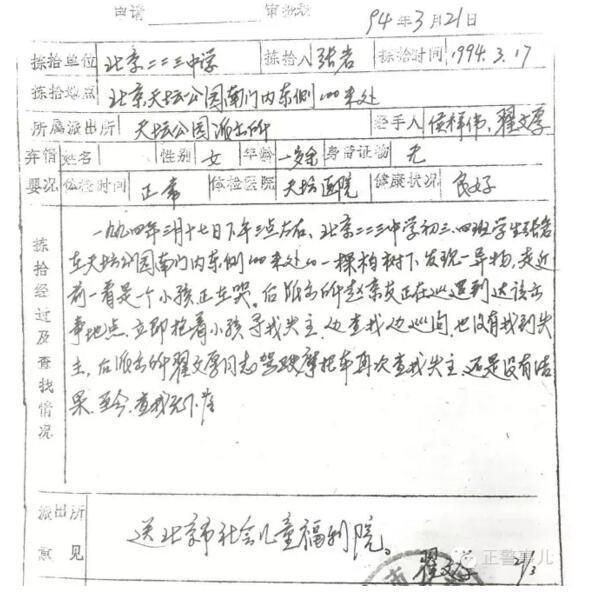 申请 审批表
94年3月21日
拣拾单位 北京二二三中学 拣拾人 张岩 拣拾时间 1994.3.17
拣拾地点 北京天坛公园南门内东侧100米处
所属派出所 天坛公园派出所 经手人 侯祥伟、翟文厚
弃婴情况 姓名 性别 女 年龄 一岁余 身份证物 无
体检时间 正常 体检医院 天坛医院 健康状况 良好
拣拾经过及查找情况
一九九四年三月十七日下午三点左右、北京二二三中学初三.四班学生张岩
在天坛公园南门内东侧100米处的一棵柏树下发现一异物,走近
前一看是个小孩正在哭。后派出所赵京友正在巡逻到达该
事地点,立即抱着小孩寻找失主,边查找边巡问,也没有找到失
主,后派出所翟文厚同志驾驶摩托车再次查找失主,还是没有结
果,至今,查找无下落
派出所意见
送北京市社会儿童福利院。
翟文厚 21/3
正警事儿